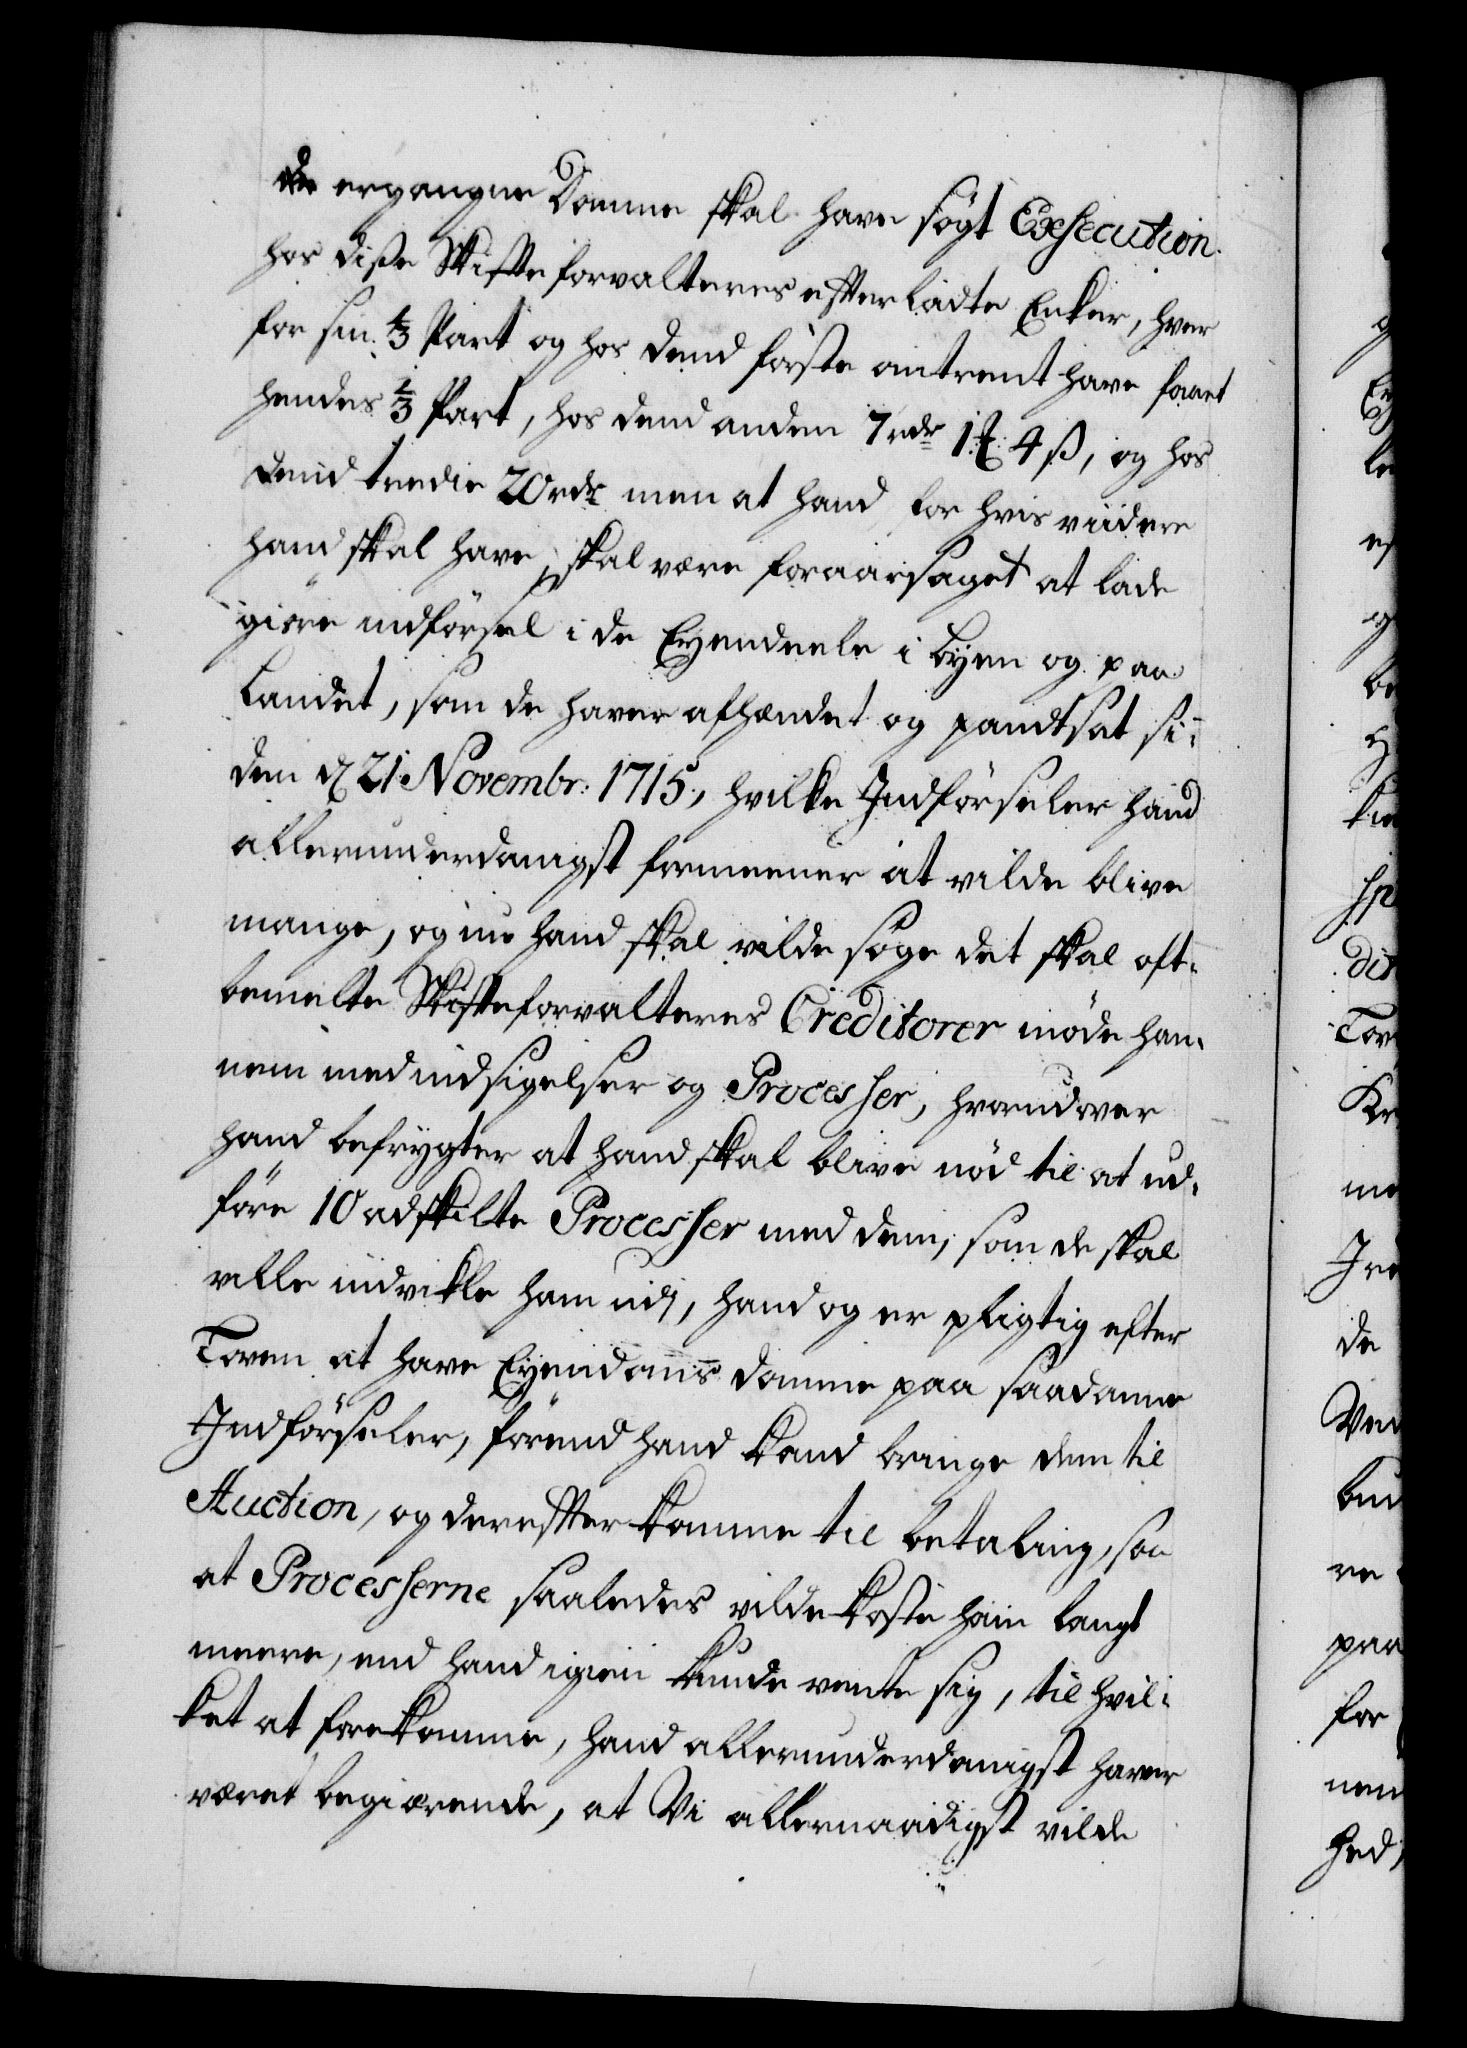 de ergangne Domme skal have søgt Exsecution
hos disse Skifteforvalteres efterladte Enker, hver
for sin 1/3 Part og hos dend første omtrent have faaet
hendes 1/3 Part, hos dend anden 7 rdr 1 ℔ 4 ß, og hos
dend tredie 20 rdr men at hand for hvis viidere
hand skal have, skal være foraarsaget at lade
giøre indførsel i de Eyendeele i Byen og paa
Landet, som de haver afhændet og pandtsat si-
den d 21 Novembr: 1715, hvilke Indførseler hand
allerunderdanigst formeener at vilde blive
mange, og nu hand skal vilde søge det skal oft-
bemelte Skifteforvalteres Creditorer møde han-
nem med indsigelser og Processer, hvorudover
hand befrygter at hand skal blive nød til at ud-
føre 10 adskilte Processer med dem, som de skal
ville indvikle ham udj, hand og er pligtig efter
Loven at have Eyendoms domme paa saadanne
Indførseler, førend hand kand bringe dem til
Auction, og derefter komme til betaling, saa
at Processerne saaledes vilde koste ham langt
meere, end hand igien kunde vente sig, til hvil-
ket at forekomme, hand allerunderdanigst haver
været begiærende, at Vi allernaadigst vilde